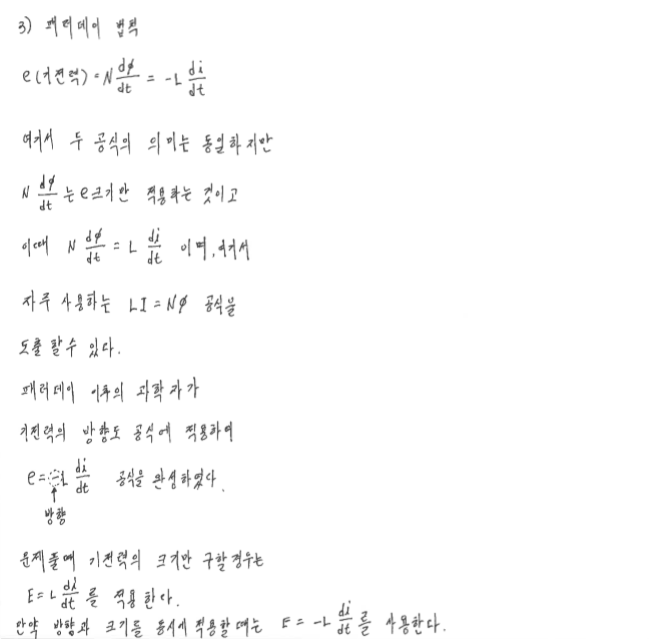 3) 패러데이 법칙
e(기전력) = N dφ/dt = -L di/dt
여기서 두 공식의 의미는 동일하지만
N dφ/dt 는 e크기만 적용하는 것이고
이때 N dφ/dt = L di/dt 이며, 여기서
자주 사용하는 LI = Nφ 공식을
도출 할 수 있다.
패러데이 이후의 과학자가
기전력의 방향도 공식에 적용하여
e = -L di/dt 공식을 완성하였다.
방향
문제풀때 기전력의 크기만 구할경우는
E = L di/dt 를 적용한다.
만약 방향과 크기를 동시에 적용할 때는 E = -L di/dt 를 사용한다.